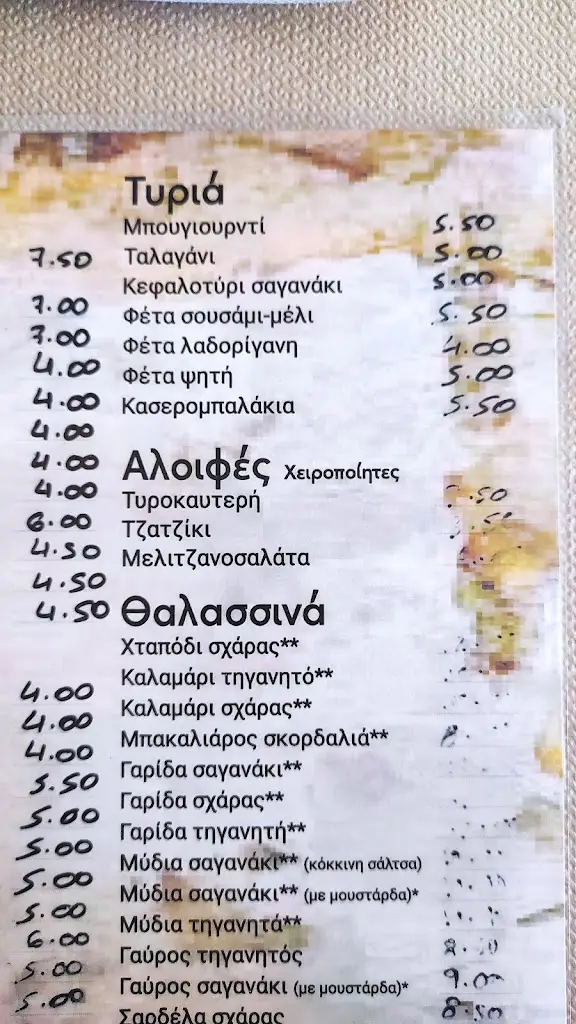 Τυριά
Μπουγιουρντί 5.50
7.50
Ταλαγάνι 5.00
Κεφαλοτύρι σαγανάκι 5.00
7.00
Φέτα σουσάμι-μέλι 5.50
7.00
Φέτα λαδορίγανη 4.00
4.00
Φέτα ψητή 5.00
4.00
Κασερομπαλάκια 5.50
4.00
4.00
Αλοιφές Χειροποίητες
4.00
Τυροκαυτερή
6.00
Τζατζίκι
4.50
Μελιτζανοσαλάτα
4.50
4.50
Θαλασσινά
Χταπόδι σχάρας**
Καλαμάρι τηγανητό**
4.00
Καλαμάρι σχάρας**
4.00
Μπακαλιάρος σκορδαλιά**
4.00
Γαρίδα σαγανάκι**
5.50
Γαρίδα σχάρας**
5.00
Γαρίδα τηγανητή**
5.00
Μύδια σαγανάκι** (κόκκινη σάλτσα)
5.00
Μύδια σαγανάκι** (με μουστάρδα)*
5.00
Μύδια τηγανητά**
6.00
Γαύρος τηγανητός
5.00
Γαύρος σαγανάκι (με μουστάρδα)* 9.00
5.00
Σαρδέλα σχάρας 8.50